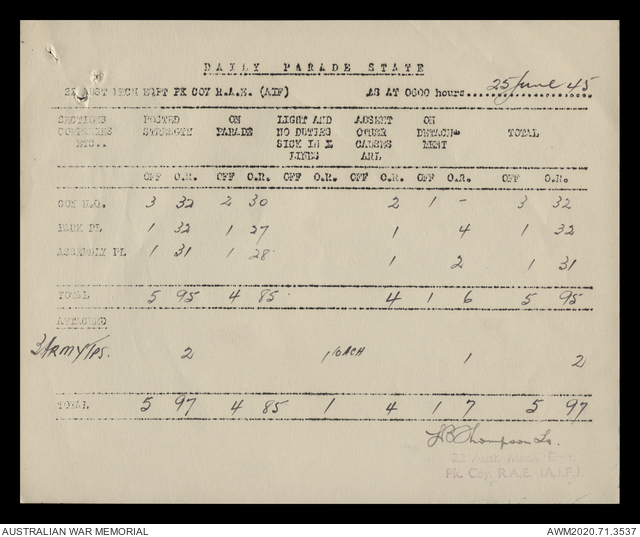 DAILY PARADE STATE
22 AUST MECH EQPT PK COY R.A.E. (AIF) AS AT 0600 hours. 25 June 45
SECTIONS POSTED ON LIGHT AND ABSENT ON
COMPANIES STRENGTH PARADE NO DUTIES OTHER DETACH- TOTAL
ETC.. SICK IN X CAUSES MENT
LINES ARL
OFF O.R. OFF O.R. OFF O.R. OFF O.R. OFF O.R. OFF O.R.
COY H.Q. 3 32 2 30 2 1 - 3 32
PARK PL 1 32 1 27 1 4 1 32
ASSEMBLY PL 1 31 1 28 1 2 1 31
TOTAL 5 95 4 85 4 1 6 5 95
ATTACHED
3 ARMY TPS. 2 1 10 ACH 1 2
TOTAL 5 97 4 85 1 4 1 7 5 97
Thompson
22 Aust. Mech. Eqpt.
Pk. Coy. R.A.E. (A.I.F.).
AUSTRALIAN WAR MEMORIAL AWM2020.71.3537